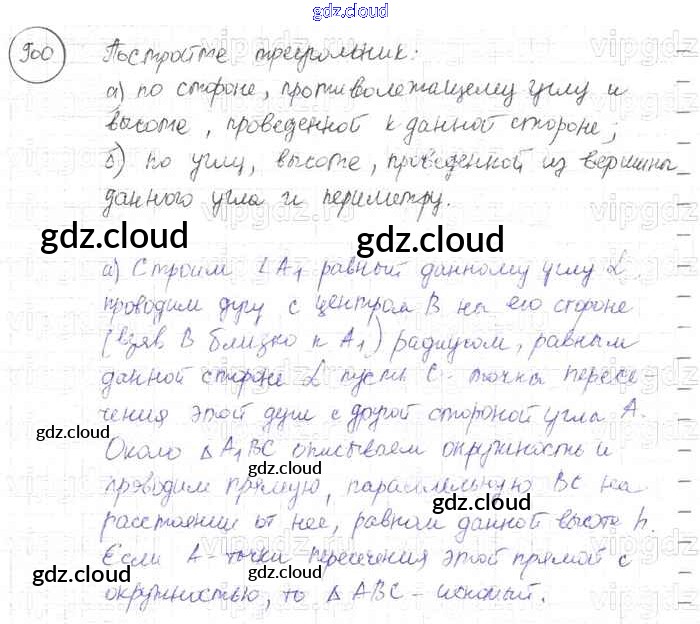 gdz.cloud
900 Постройте треугольник:
а) по стороне, противолежащему углу и
высоте, проведенной к данной стороне;
б) по углу, высоте, проведенной из вершины
данного угла и периметру.
gdz.cloud
gdz.cloud
а) Строим ∠A₁ равный данному углу α.
проводим дугу с центром B на его стороне
(взяв B близко к A₁) радиусом, равным
данной стороне α пусть C - точка пересе-
чения этой дуги с другой стороной угла A.
gdz.cloud
Около △A₁BC описываем окружность и
gdz.cloud
проводим прямую, параллельную BC на
gdz.cloud
расстоянии от нее, равном данной высоте h.
Если A - точка пересечения этой прямой с
gdz.cloud
gdz.cloud
окружностью, то △ABC - искомый.